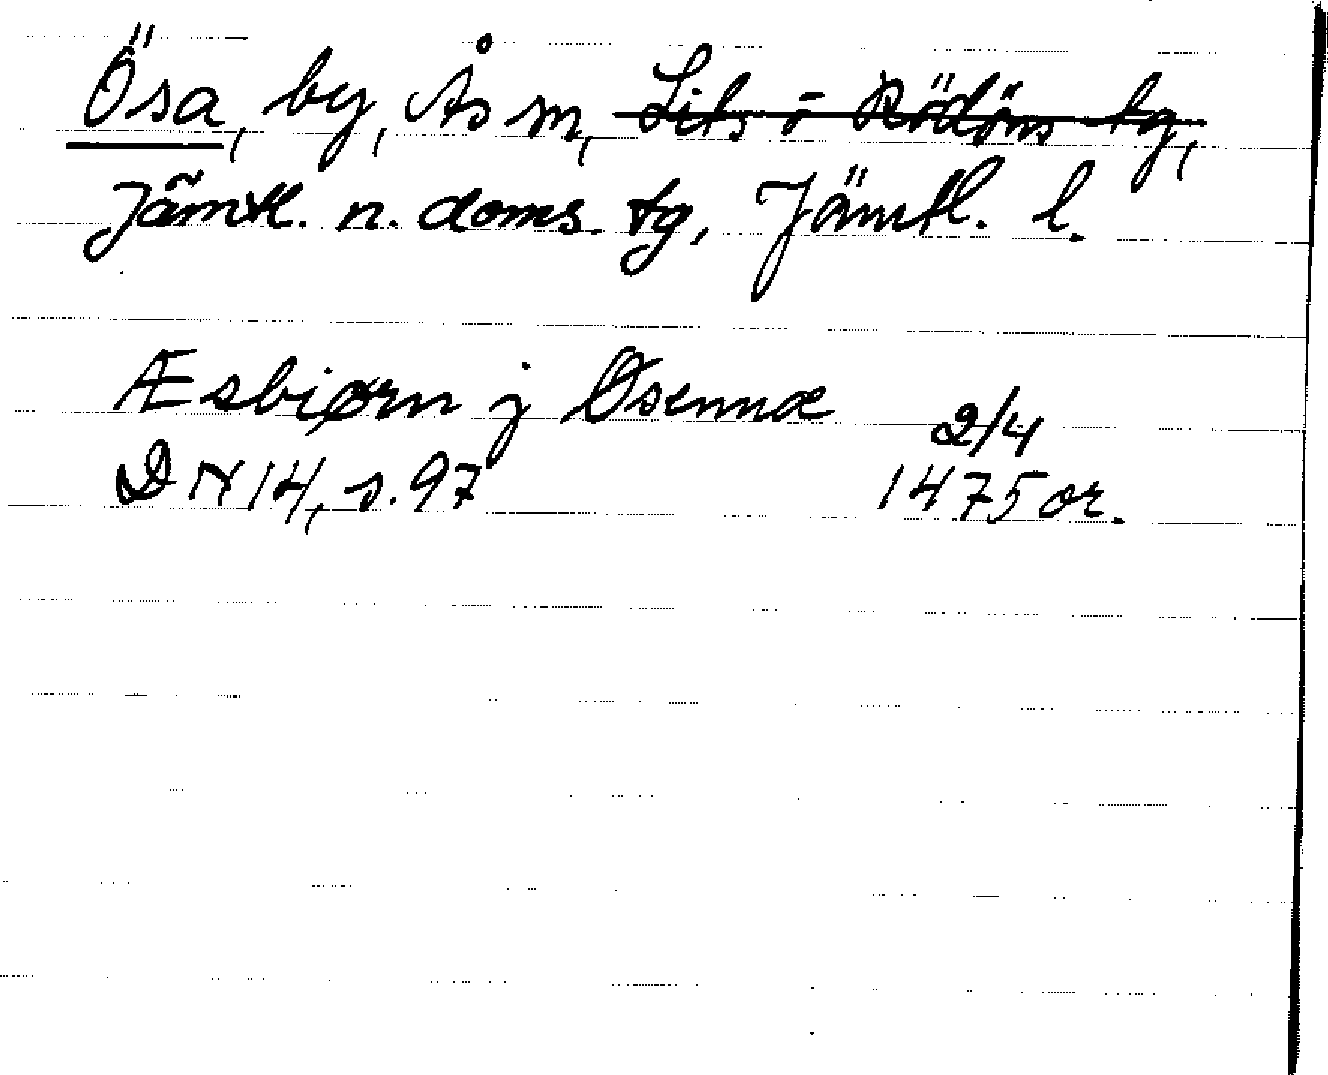 Ösa, by, Ås sn, Lits o Rödöns tg,
Jämtl. n. doms. tg, Jämtl. l.
Æsbiørn j Øsennæ 2/4
DN 14, s. 97 1475 or.